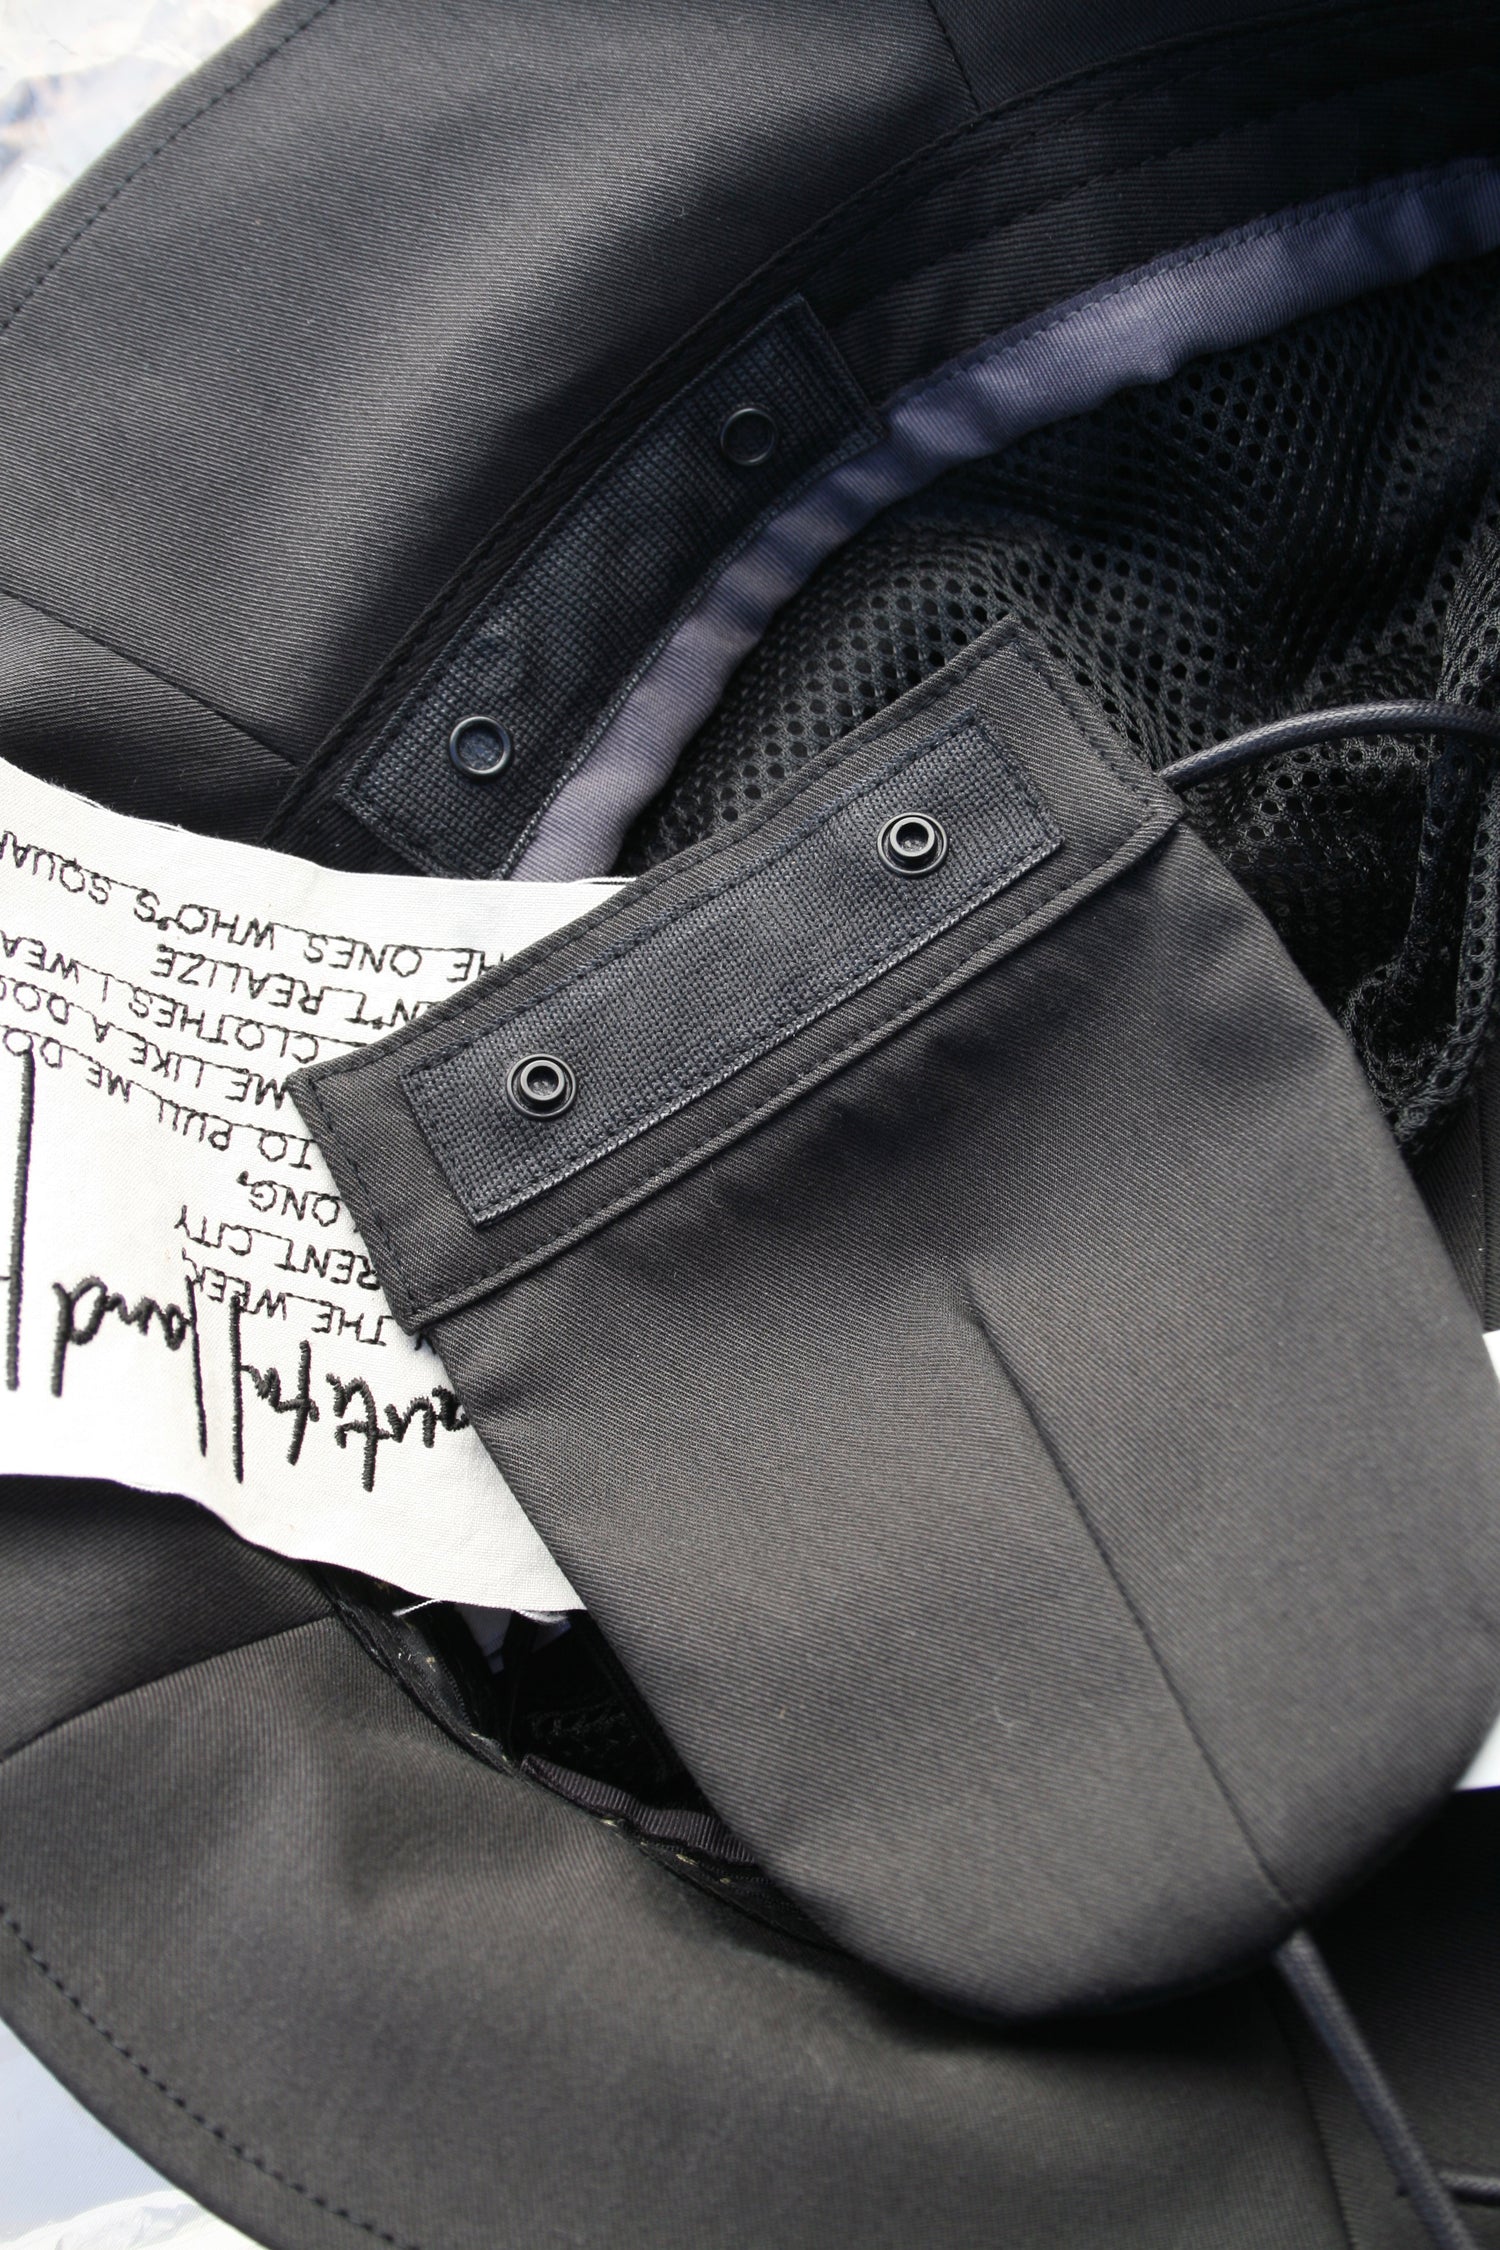 autiful land
THE WEEK,
RENT CITY
ONG,
TO PULL ME DO
ME LIKE A DO
CLOTHES I WEA
N'T REALIZE
HE ONES WHO'S SQUA